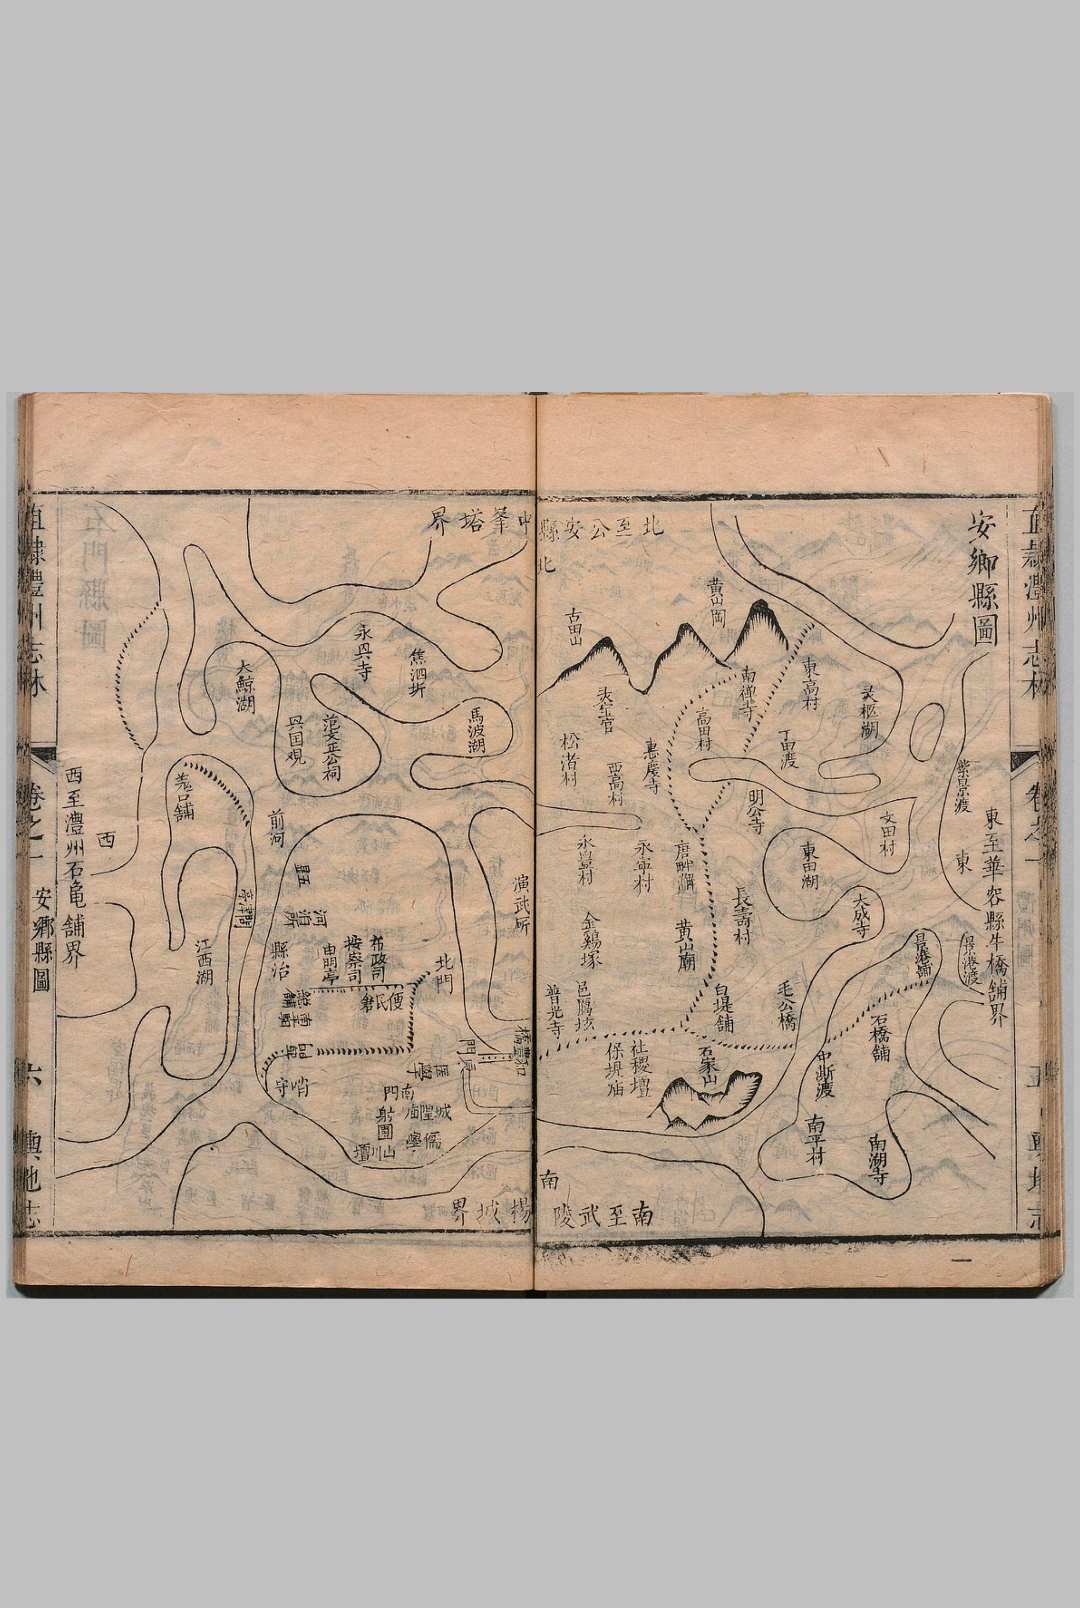 直隸澧州志林
卷之一
五
輿地志
安鄉縣圖
東至華容縣牛橋舖界
東
紫景渡
景港渡
景港舖
文田村
大成寺
石橋舖
南湖寺
東田湖
東高村
丁田渡
毛公橋
中斯渡
南平村
南禪寺
明公寺
長壽村
白堤舖
石家山
黃山
高田村
唐畔湖
黃山廟
惠慶寺
永寧村
社稷壇
保垻庙
西高村
永豊村
金鷄塚
古田山
松渚村
普光寺
北至公安縣
北
南
南至武陵
中峯塔界
楊城界
演武所
馬波湖
焦泗圻
永兴寺
范文正公祠
大鯨湖
前河
河泊所
縣治
申明亭
按察司
布政司
便民倉
北門
南門
哨守
射圃
城隍庙
儒學
山川壇
江西湖
羗口舖
西
西至澧州石龜舖界
直隸澧州志林
卷之一
安鄉縣圖
六
輿地志